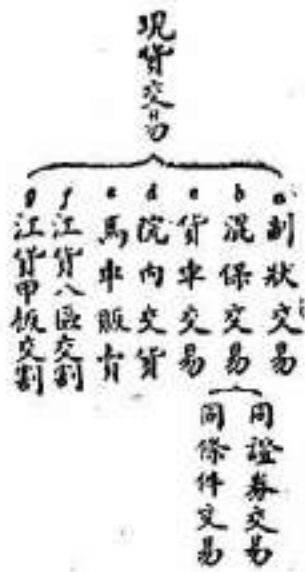 現貨交易
a 割狀交易
b 混保交易
同證券交易
同條件交易
c 貨車交易
d 院內交貨
e 馬車販賣
f 江貨八區交割
g 江貨甲板交割